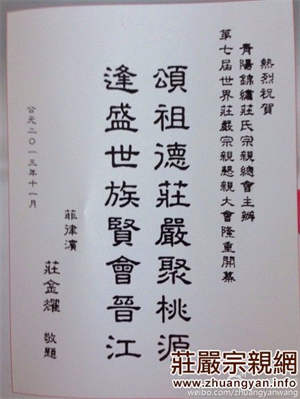 熱烈祝賀
青陽錦繡莊氏宗親總會主辦
第七屆世界莊嚴宗親懇親大會隆重開幕
頌祖德莊嚴聚桃源
逢盛世族賢會晉江
菲律濱
莊金耀 敬題
公元二〇一三年十一月
莊嚴宗親網
www.zhuangyan.info
http://weibo.com/zhuangyanwang